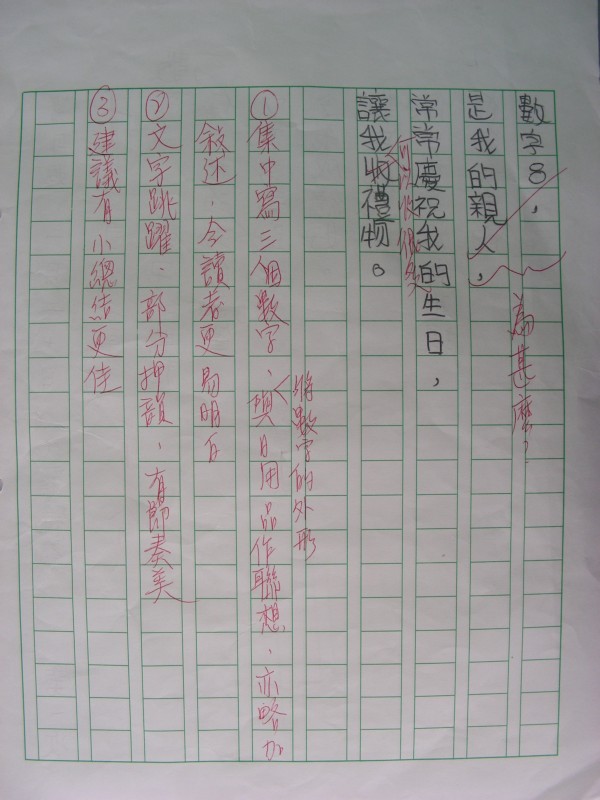 數字8，
為甚麼？
是我的親人，
常常慶祝我的生日，
讓我收禮物。
將數字的外形
①集中寫三個數字、與日用品作聯想，亦略加
敘述，令讀者更易明白
②文字跳躍，部分押韻，有節奏美
③建議有小總結更佳